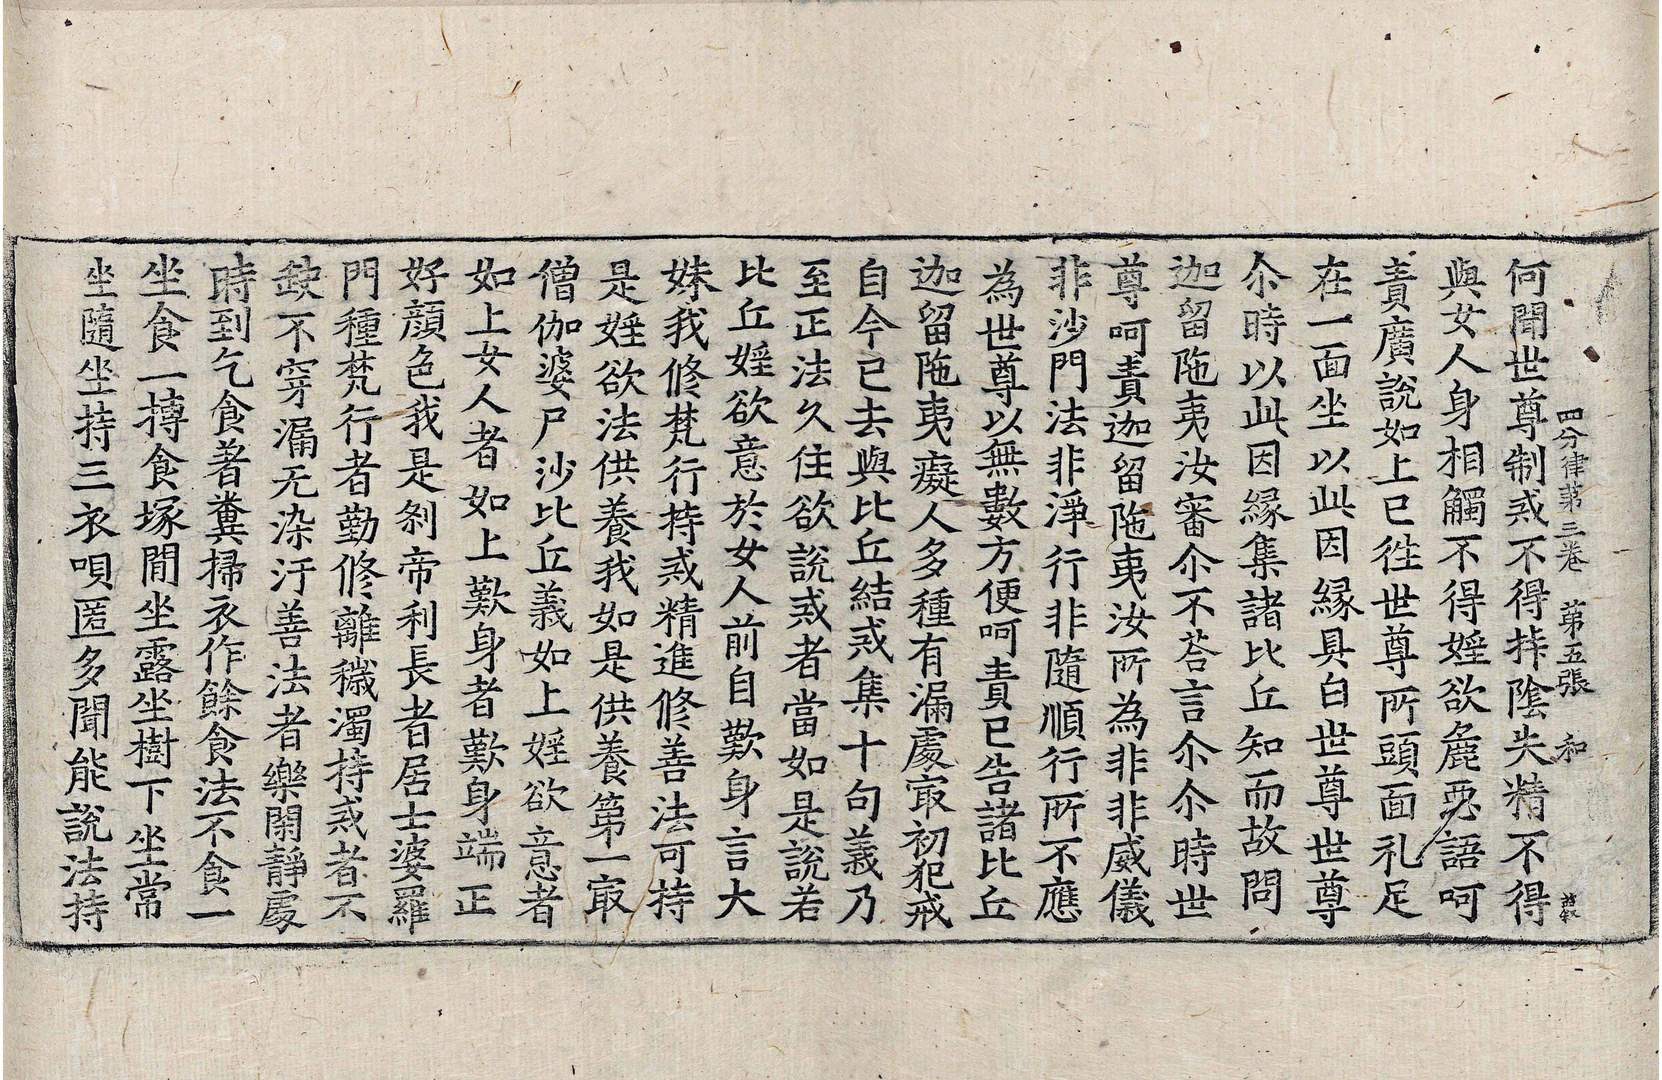 四分律第三卷　第五張　和
何聞世尊制戒不得捽陰失精不得
與女人身相觸不得婬欲麁惡語呵
責廣說如上已往世尊所頭面礼足
在一面坐以此因緣具白世尊世尊
尒時以此因緣集諸比丘知而故問
迦留陁夷汝審尒不荅言尒尒時世
尊呵責迦留陁夷汝所為非非威儀
非沙門法非淨行非隨順行所不應
為世尊以無數方便呵責已告諸比丘
迦留陁夷癡人多種有漏處㝡初犯戒
自今已去與比丘結戒集十句義乃
至正法久住欲說戒者當如是說若
比丘婬欲意於女人前自歎身言大
妹我修梵行持戒精進修善法可持
是婬欲法供養我如是供養第一㝡
僧伽婆尸沙比丘義如上婬欲意者
如上女人者如上歎身者歎身端正
好顏色我是剎帝利長者居士婆羅
門種梵行者勤修離穢濁持戒者不
缺不穿漏无染汙善法者樂閑靜處
時到乞食著糞掃衣作餘食法不食一
坐食一摶食塚間坐露坐樹下坐常
坐隨坐持三衣唄匿多聞能說法持